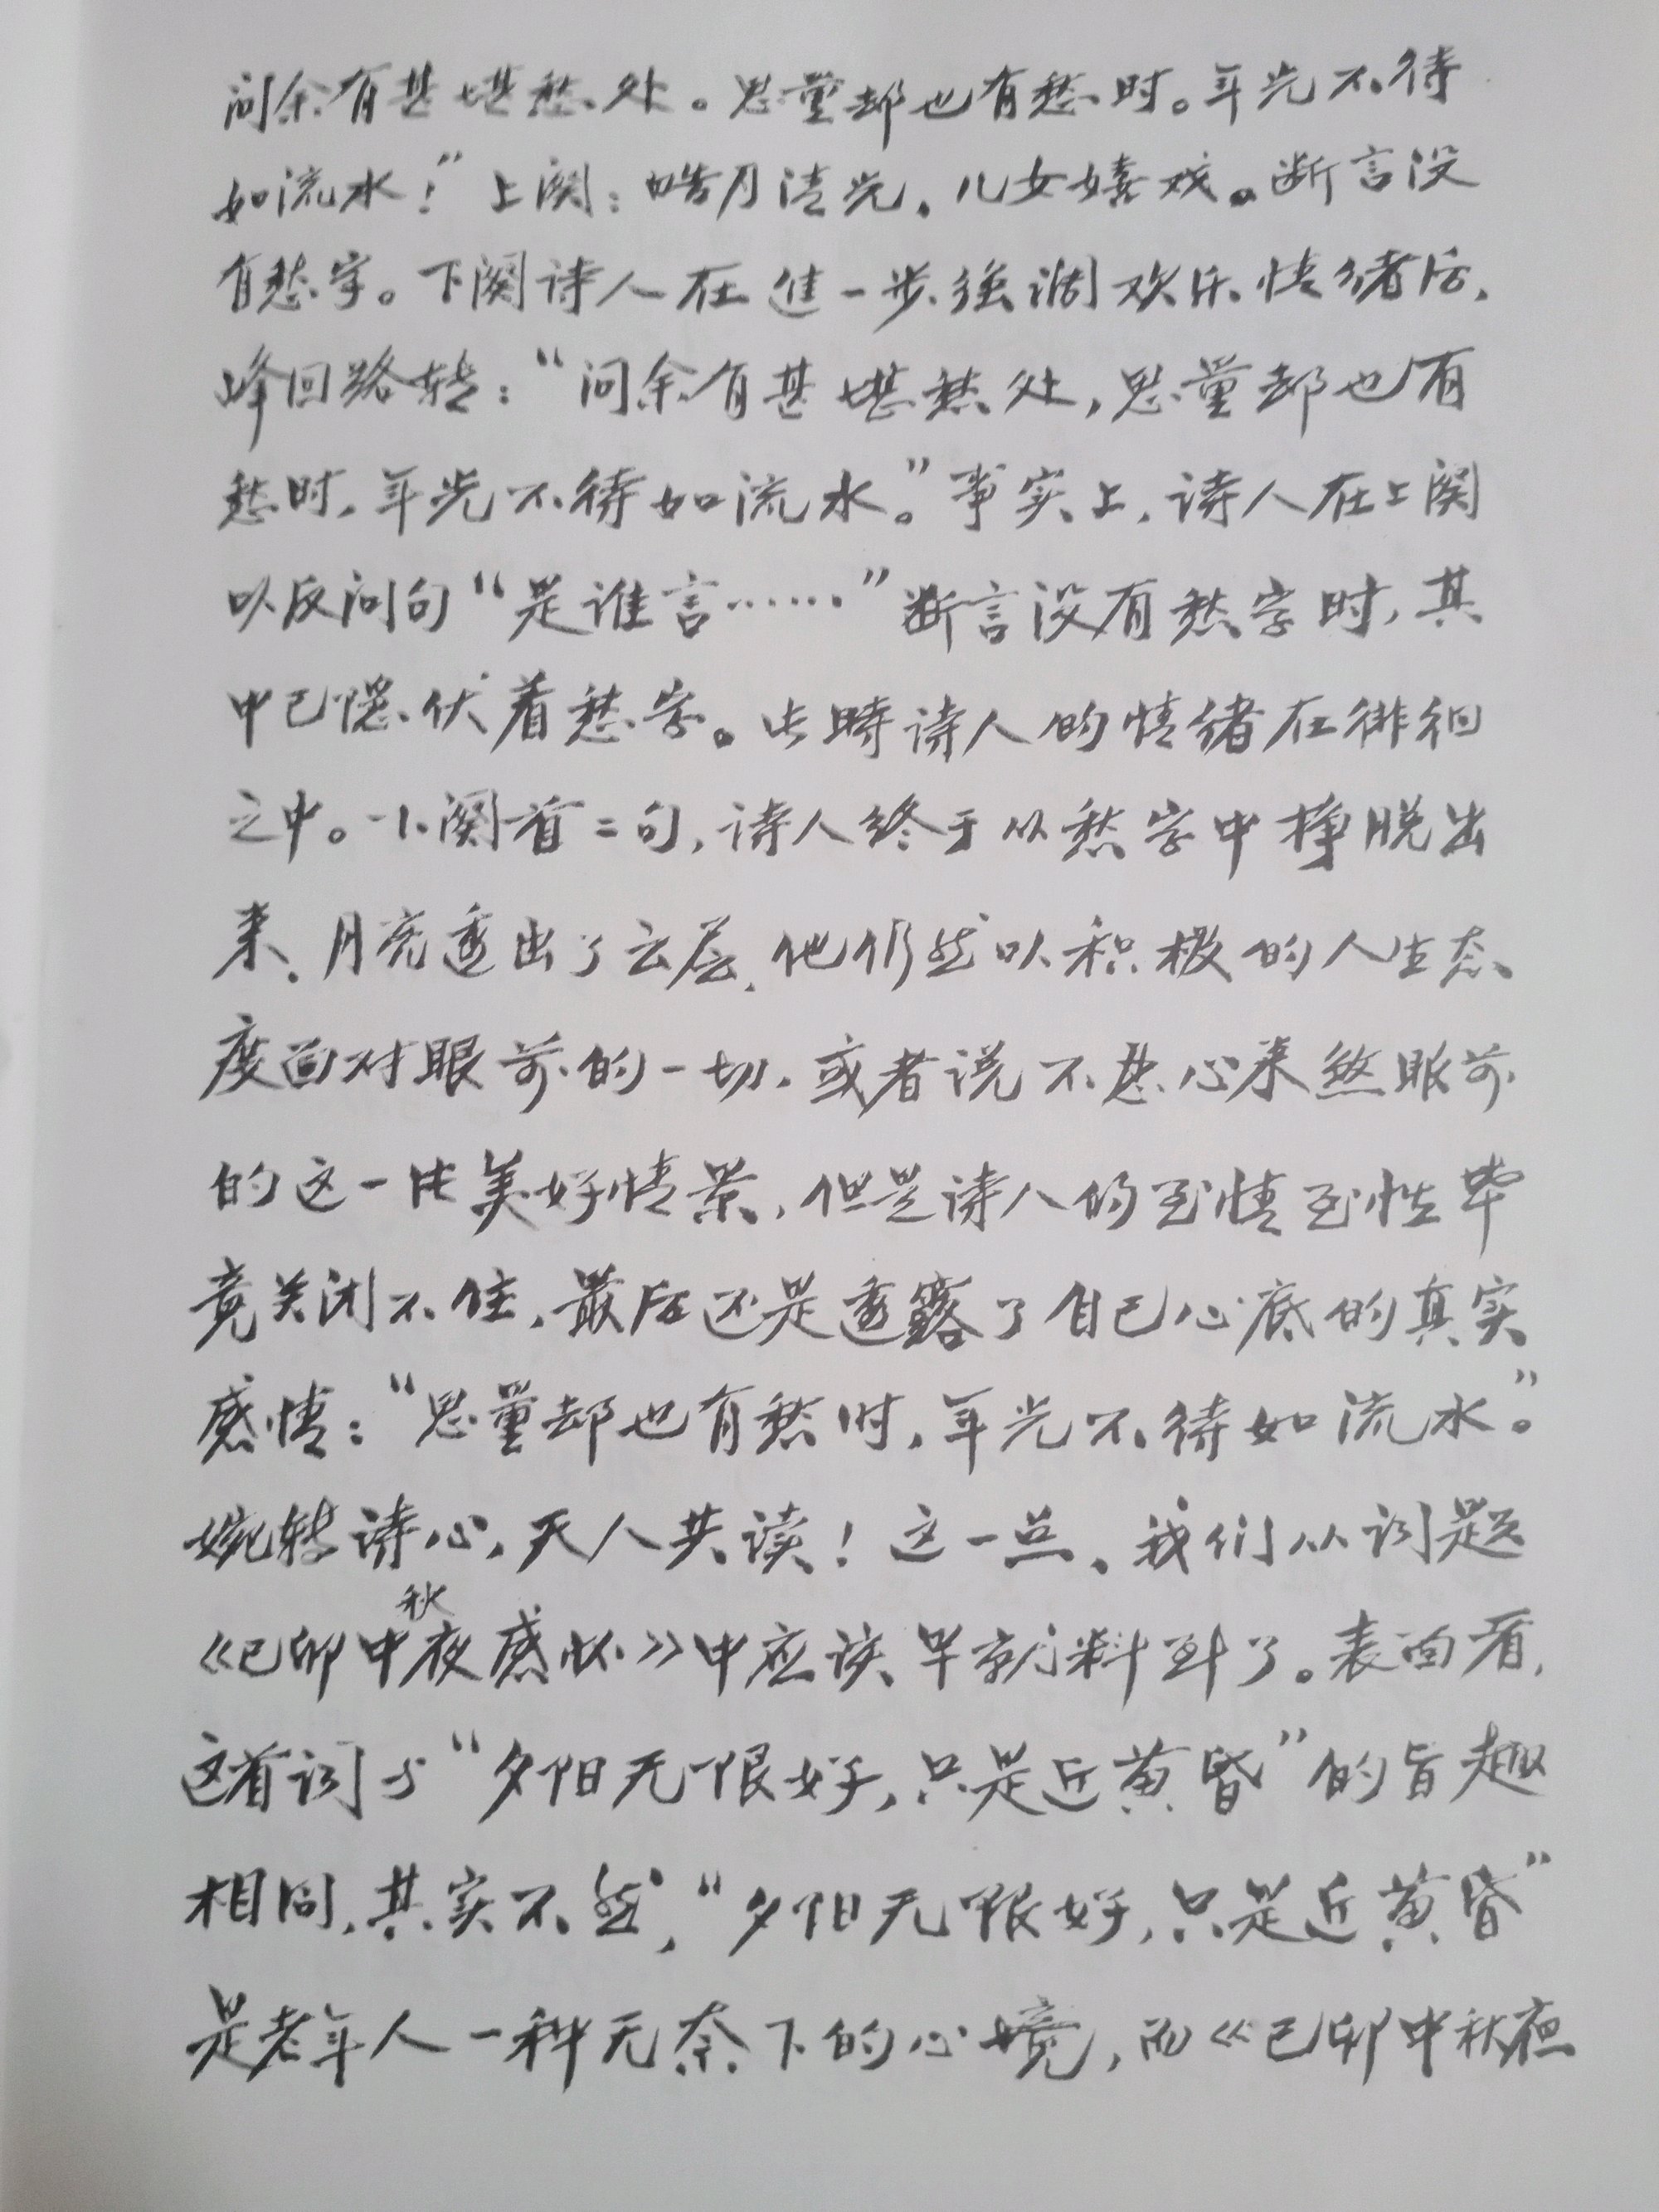 问余有甚堪愁处。思量却也有愁时。年光不待
如流水！”上阕：皓月清光，儿女嬉戏。断言没
有愁字。下阕诗人在进一步强调欢乐情绪后，
峰回路转：“问余有甚堪愁处，思量却也有
愁时，年光不待如流水。”事实上，诗人在上阕
以反问句“是谁言……”断言没有愁字时，其
中已隐伏着愁字。此時诗人的情绪在徘徊
之中。下阕首二句，诗人终于从愁字中挣脱出
来，月亮透出了云层，他仍然以积极的人生态
度面对眼前的一切，或者说不忍心来煞眼前
的这一片美好情景，但是诗人的至情至性毕
竟关闭不住，最后还是透露了自己心底的真实
感情：“思量却也有愁时，年光不待如流水”。
婉转诗心，天人共读！这一点，我们从词题
《己卯中秋夜感怀》中应该早就料到了。表面看，
这首词与“夕阳无限好，只是近黄昏”的旨趣
相同，其实不然，“夕阳无限好，只是近黄昏”
是老年人一种无奈下的心境，而《己卯中秋夜